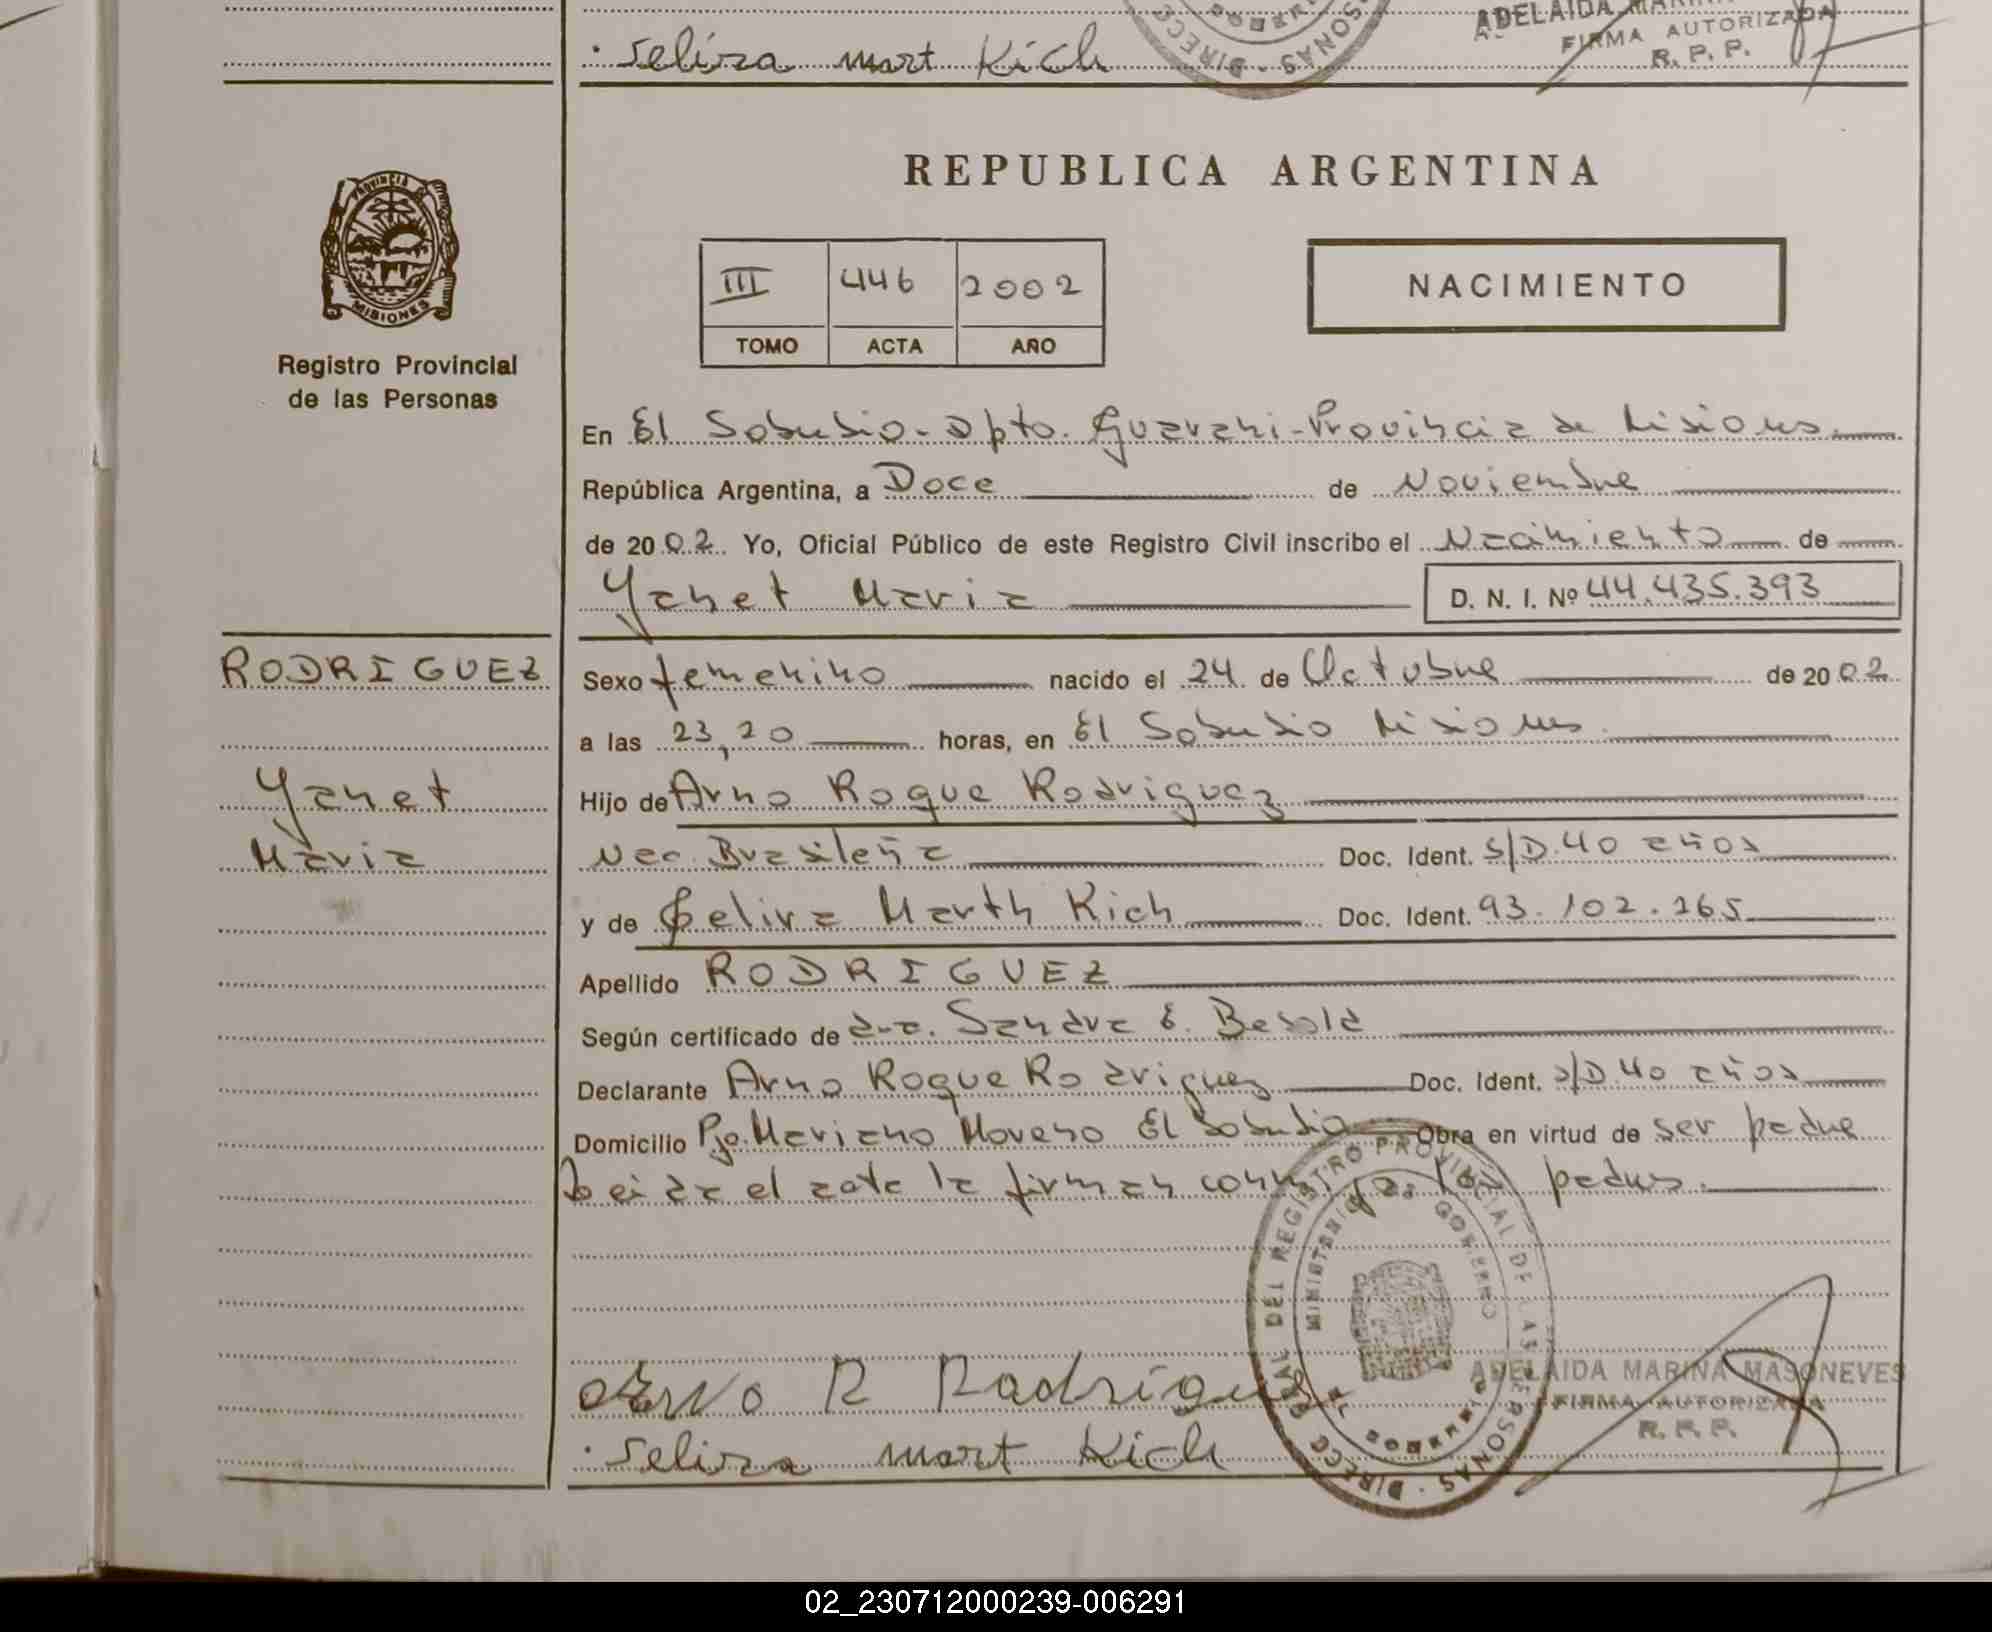 . Selira mart Kich
ADELAIDA
FIRMA AUTORIZADA
R. P. P.
DIRECC
SONAS
REPUBLICA ARGENTINA
Provincia
MISIONES
Registro Provincial
de las Personas
III 446 2002
TOMO ACTA AÑO
NACIMIENTO
En El Soberbio - Dpto. Guarani - Provincia de Misiones.
República Argentina, a Doce de Noviembre
de 2002. Yo, Oficial Público de este Registro Civil inscribo el Nacimiento de
Yanet Maria D. N. I. Nº 44.435.393
RODRIGUEZ
Yanet
Maria
Sexo femenino nacido el 24 de Octubre de 2002
a las 23,20 horas, en El Soberbio Misiones
Hijo de Arno Roque Rodriguez
Nac. Brasileña Doc. Ident. S/D. 40 años
y de Selira Marth Kich Doc. Ident. 93.102.265
Apellido RODRIGUEZ
Según certificado de dra. Sandra E. Besold
Declarante Arno Roque Rodriguez Doc. Ident. S/D. 40 años
Domicilio Pje. Mariano Moreno El Soberbio Obra en virtud de ser padre
Leida el acta la firman conmigo los padres.
DIRECC GRAL DEL REGISTRO PROVINCIAL DE LAS PERSONAS
MINISTERIO GOBIERNO
Arno R Radrigues
. Selira mart Kich
ADELAIDA MARINA MASONEVES
FIRMA AUTORIZADA
R. P. P.
02_230712000239-006291